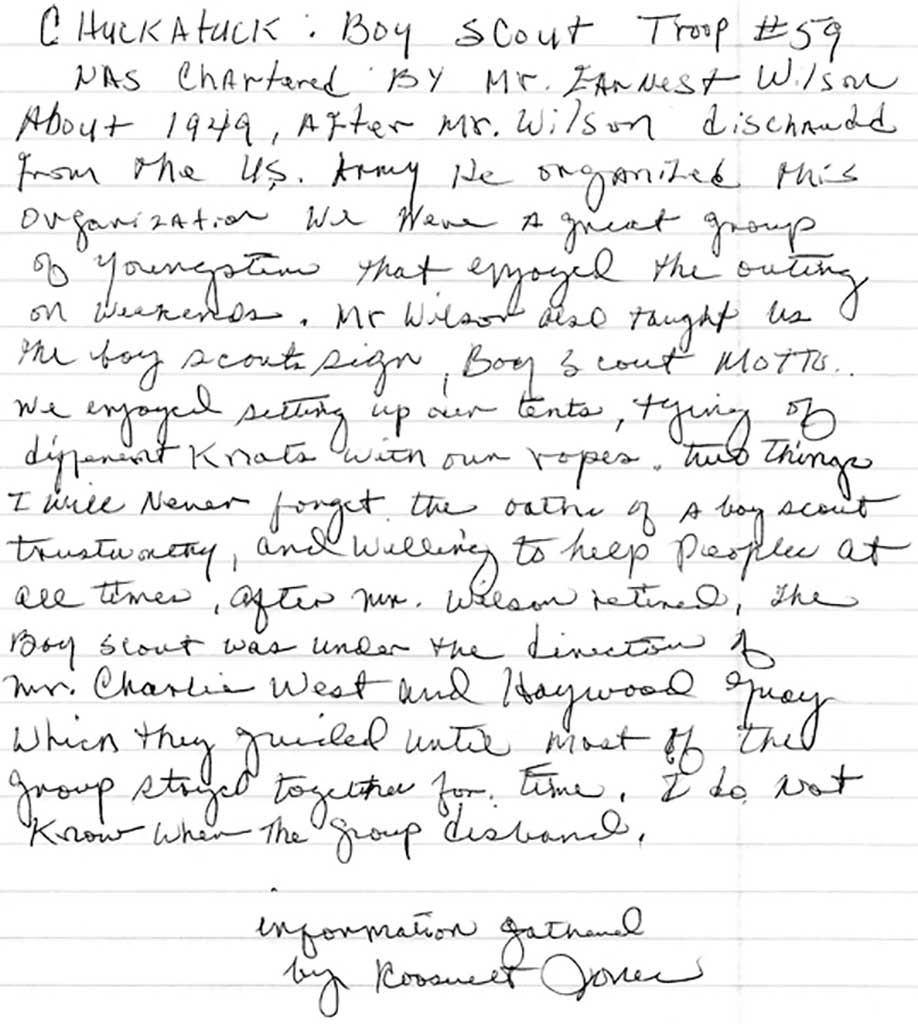 CHUCKATUCK: Boy Scout Troop #59
WAS Chartered BY Mr. EARNEST Wilson
About 1949, After Mr. Wilson
from the U.S. Army He organized this
Organization We Were A great group
of Youngsters that enjoyed the outing
on Weekends. Mr Wilson also taught us
the boy scouts sign, Boy Scout MOTTO..
We enjoyed setting up our tents, tying of
different Knots with our ropes. two Things
I will Never forget the oath of A boy scout
trustworthy, and Willing to help People at
all times, after mr. Wilson retired, the
Boy Scout was under the direction of
Mr. Charlie West and Haywood Gray
Which they guided until most of the
group stayed together for. time. I do not
Know when the group disband.
information gathered
by Roosevelt Jones